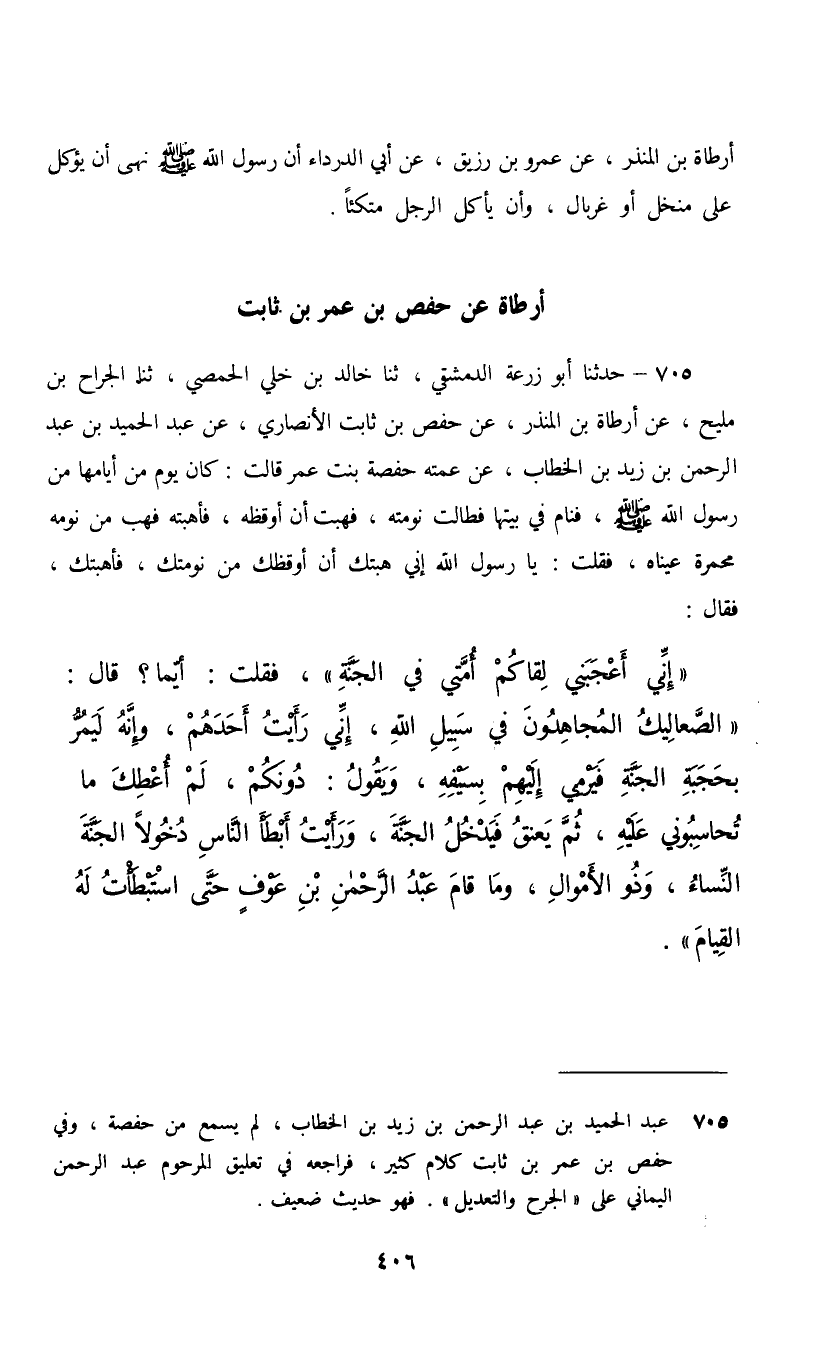 أرطاة بن المنذر ، عن عمرو بن رزيق ، عن أبي الدرداء أن رسول الله ﷺ نهى أن يؤكل
على منخل أو غربال ، وأن يأكل الرجل متكئاً .
أرطاة عن حفص بن عمر بن ثابت
٧٠٥ – حدثنا أبو زرعة الدمشقي ، ثنا خالد بن خلي الحمصي ، ثنا الجراح بن
مليح ، عن أرطاة بن المنذر ، عن حفص بن ثابت الأنصاري ، عن عبد الحميد بن عبد
الرحمن بن زيد بن الخطاب ، عن عمته حفصة بنت عمر قالت : كان يوم من أيامها من
رسول الله ﷺ ، فنام في بيتها فطالت نومته ، فهبت أن أوقظه ، فأهبته فهب من نومه
محمرة عيناه ، فقلت : يا رسول الله إني هبتك أن أوقظك من نومتك ، فأهبتك ،
فقال :
« إِنِّي أَعْجَبَنِي لِقاكُمْ أُمَّتي في الجَنَّةِ» ، فقلت : أيّما ؟ قال :
« الصَّعالِيكُ المُجاهِدُونَ في سَبِيلِ اللهِ ، إِنِّي رَأَيْتُ أَحَدَهُمْ ، وإِنَّهُ لَيَمُرُّ
بحَجَبَةِ الجَنَّةِ فَيَرْمي إِلَيْهِمْ بِسَيْفِهِ ، وَيَقُولُ : دُونَكُمْ ، لَمْ أُعْطِكَ ما
تُحاسِبُوني عَلَيْهِ ، ثُمَّ يَعنقُ فَيَدْخُلُ الجَنَّةَ ، وَرَأَيْتُ أَبْطَأَ النَّاسِ دُخُولاً الجَنَّةَ
النِّساءُ ، وَذُو الأَمْوالِ ، ومَا قامَ عَبْدُ الرَّحْمٰنِ بْنِ عَوْفٍ حَتَّى اسْتَبْطَأْتُ لَهُ
القِيامَ» .
٧٠٥ عبد الحميد بن عبد الرحمن بن زيد بن الخطاب ، لم يسمع من حفصة ، وفي
حفص بن عمر بن ثابت كلام كثير ، فراجعه في تعليق المرحوم عبد الرحمن
اليماني على « الجرح والتعديل» . فهو حديث ضعيف .
٤٠٦